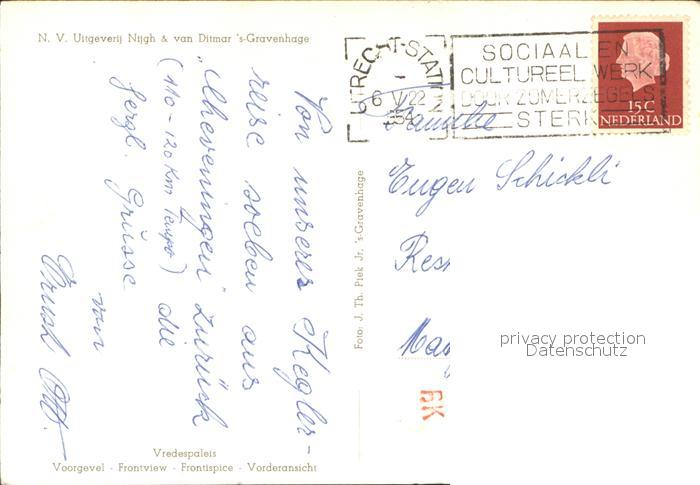 N. V. Uitgeverij Nijgh & van Ditmar 's-Gravenhage
UTRECHT-STATION
6 V 22
1954
SOCIAAL EN
CULTUREEL WERK
DOOR ZOMERZEGELS
STERK
15 C
NEDERLAND
Von unserer Kegler-
reise soeben aus
"Scheveningen" zurück
(110-120 Km Tempo) die
herzl. Grüsse
von
Familie
Eugen Schickli
Res
Ma
Foto: J. Th. Piek Jr. 's-Gravenhage
privacy protection
Datenschutz
BK
Vredespaleis
Voorgevel - Frontview - Frontispice - Vorderansicht